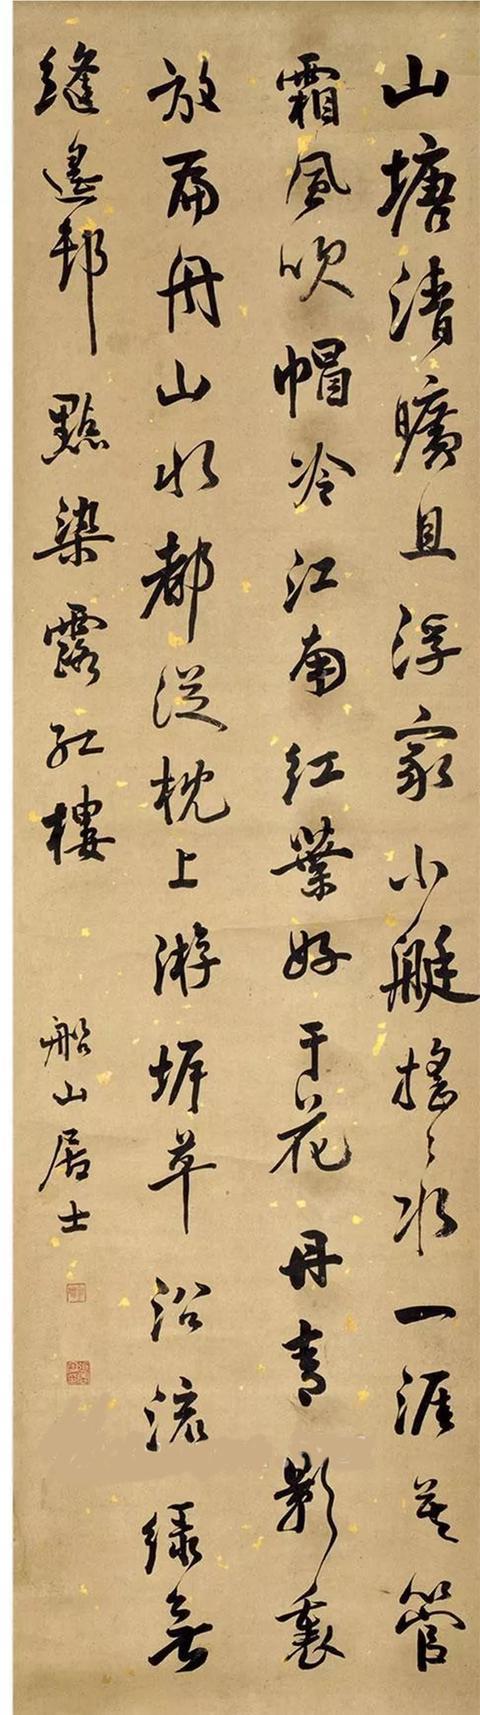 山塘清曠且浮家小艇搖〻水一涯莫管
霜風吹帽冷江南紅葉好于花丹青影裏
放扁舟山水都從枕上游草沿流綠無
縫遙邨點染露紅樓
船山居士